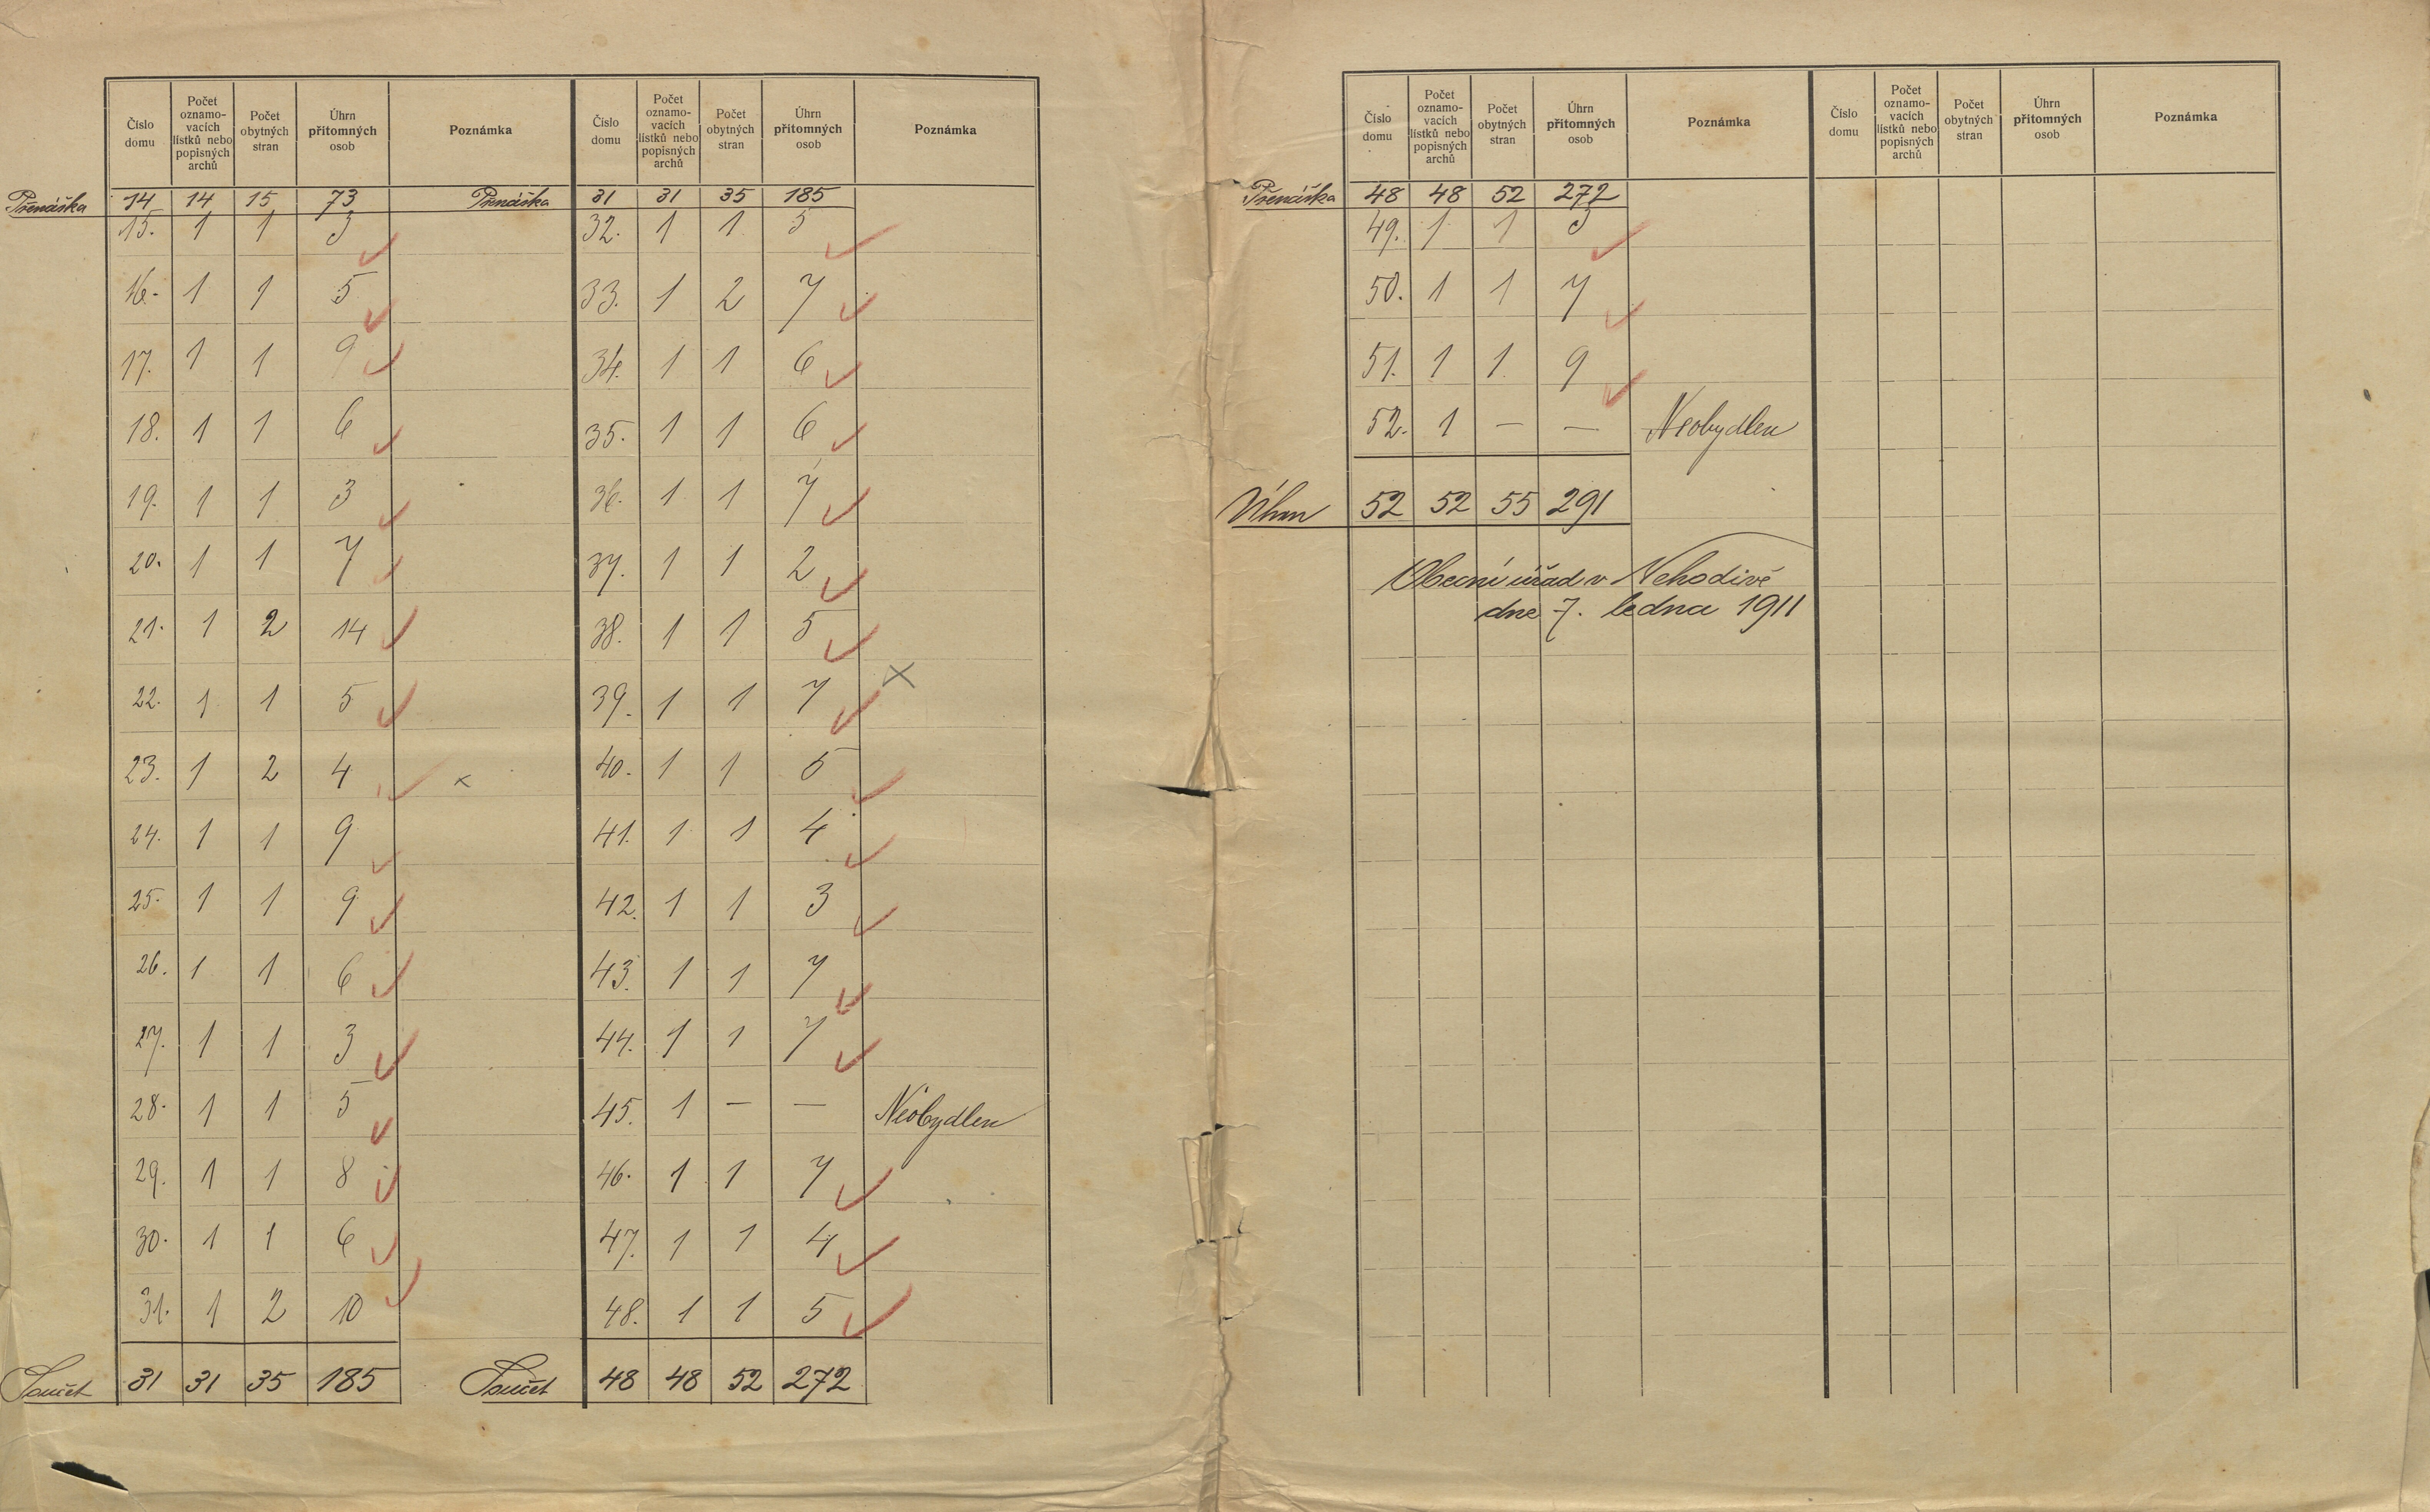 Číslo domu | Počet oznamovacích lístků nebo popisných archů | Počet obytných stran | Úhrn přítomných osob | Poznámka
Přenáška 14 14 15 73
15. 1 1 3
16. 1 1 5
17. 1 1 9
18. 1 1 6
19. 1 1 3
20. 1 1 7
21. 1 2 14
22. 1 1 5
23. 1 2 4 x
24. 1 1 9
25. 1 1 9
26. 1 1 6
27. 1 1 3
28. 1 1 5
29. 1 1 8
30. 1 1 6
31. 1 2 10
Součet 31 31 35 185
Číslo domu | Počet oznamovacích lístků nebo popisných archů | Počet obytných stran | Úhrn přítomných osob | Poznámka
Přenáška 31 31 35 185
32. 1 1 5
33. 1 2 7
34. 1 1 6
35. 1 1 6
36. 1 1 7
37. 1 1 2
38. 1 1 5
39. 1 1 7 x
40. 1 1 5
41. 1 1 4
42. 1 1 3
43. 1 1 7
44. 1 1 7
45. 1 — — Neobydlen
46. 1 1 7
47. 1 1 4
48. 1 1 5
Součet 48 48 52 272
Číslo domu | Počet oznamovacích lístků nebo popisných archů | Počet obytných stran | Úhrn přítomných osob | Poznámka
Přenáška 48 48 52 272
49. 1 1 3
50. 1 1 7
51. 1 1 9
52. 1 — — Neobydlen
Úhrn 52 52 55 291
Obecní úřad v Nehodivě
dne 7. ledna 1911
Číslo domu | Počet oznamovacích lístků nebo popisných archů | Počet obytných stran | Úhrn přítomných osob | Poznámka